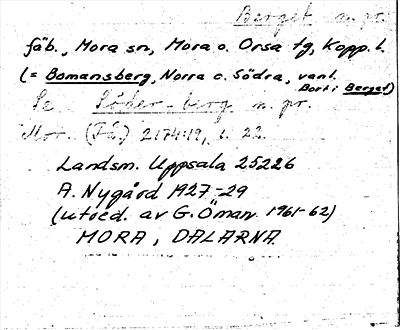 Berget n. pr.
fäb., Mora sn, Mora o. Orsa tg, Kopp. l.
(= Bomansberg, Norra o. Södra, vanl.
Bort i Berget)
Se Söder-berg n. pr.
Mor. (Få.) 2174:19, s. 22.
Landsm. Uppsala 25226
A. Nygård 1927-29
(utred. av G. Öman 1961-62)
MORA, DALARNA.